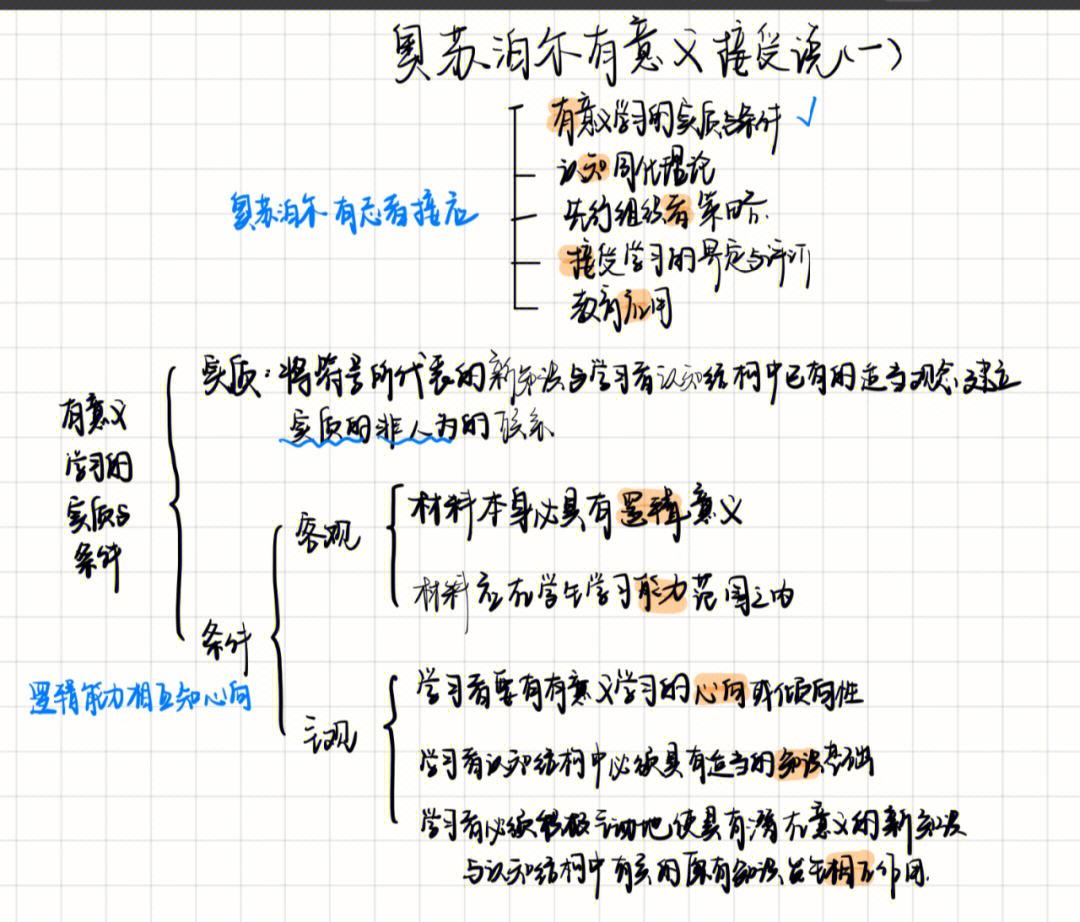 奥苏泊尔有意义接受说(一)
有意义学习的实质与条件 ✓
认知同化理论
奥苏泊尔有志者接应
先行组织者策略.
接受学习的界定与评价
教育应用
实质：将符号所代表的新知识与学习者认知结构中已有的适当观念建立
实质的非人为的联系.
有意义
学习的
实质与
条件
客观
材料本身必具有逻辑意义
材料应在学生学习能力范围之内
条件
逻辑能力相互知心向
主观
学习者要有有意义学习的心向或倾向性
学习者认知结构中必须具有适当的知识基础
学习者必须积极主动地使具有潜在意义的新知识
与认知结构中有关的原有知识发生相互作用.